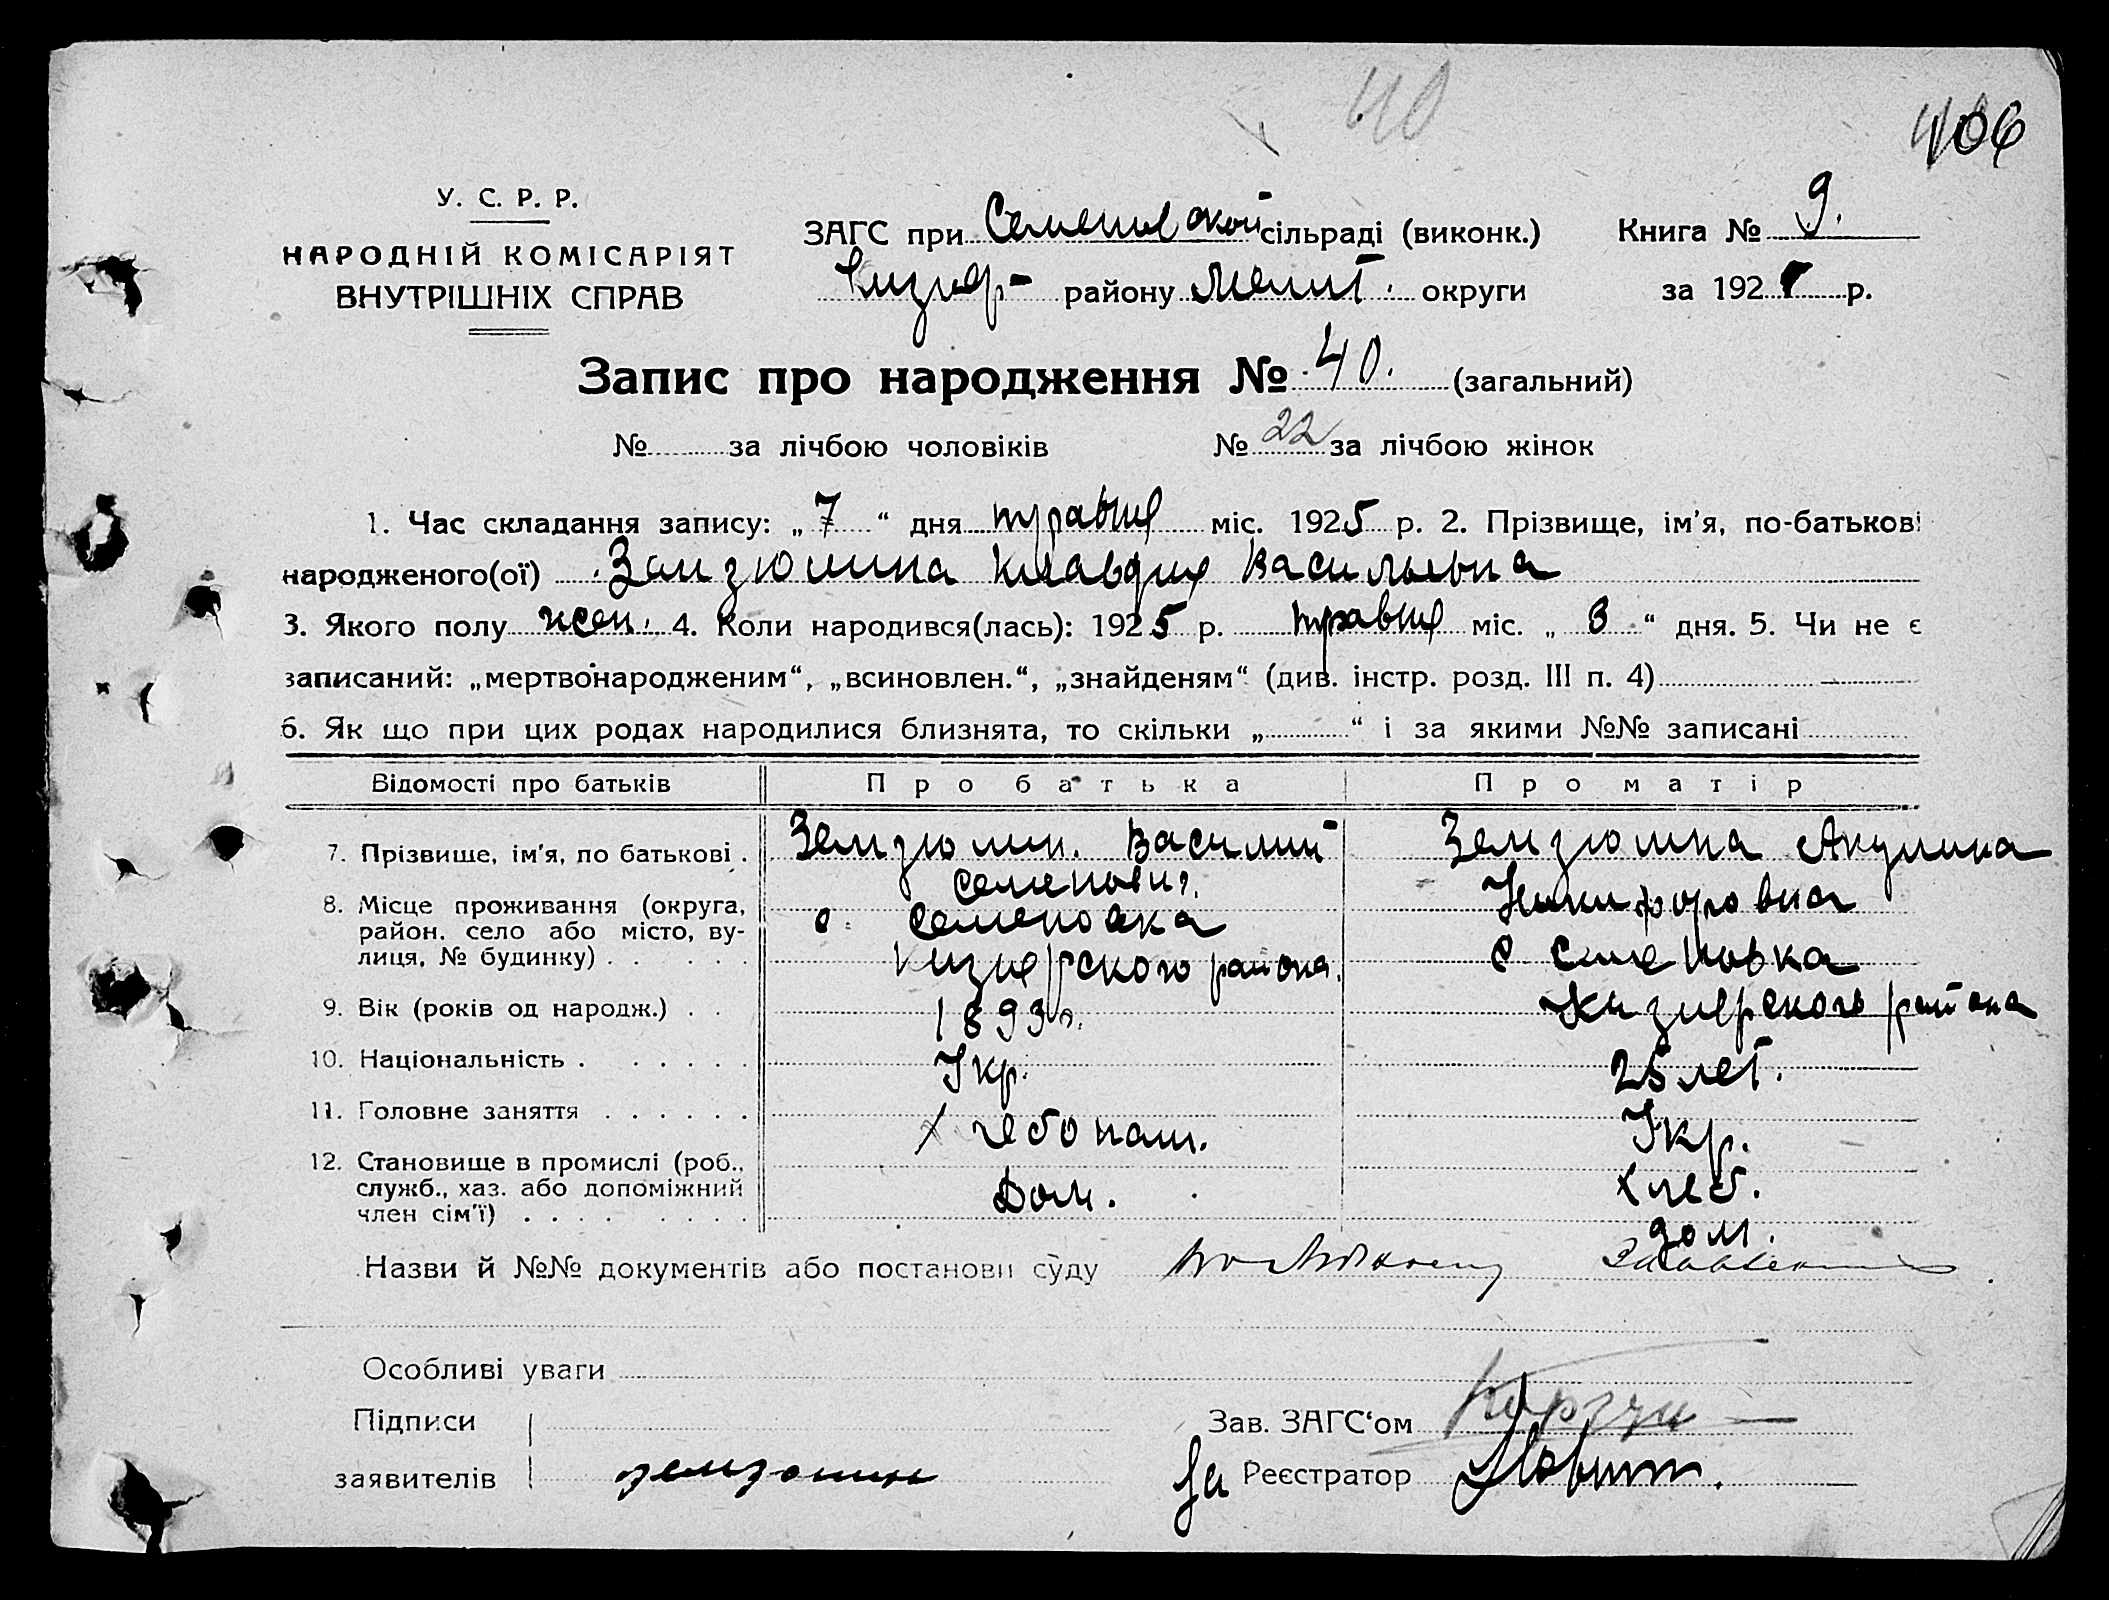 40
406
У. С. Р. Р.
НАРОДНІЙ КОМІСАРІЯТ
ВНУТРІШНІХ СПРАВ
ЗАГС при Семеновской сільраді (виконк.)
Книга № 9.
Кизияр- району Мелит. округи
за 192 р.
Запис про народження № 40. (загальний)
№ за лічбою чоловіків № 22 за лічбою жінок
1. Час складання запису: „7“ дня травня міс. 1925 р. 2. Прізвище, ім'я, по-батькові
народженого(ої) Замзюлина Клавдия Васильевна
3. Якого полу жен. 4. Коли народився(лась): 1925 р. травня міс. „3“ дня. 5. Чи не є
записаний: „мертвонародженим“, „всиновлен.“, „знайденям“ (див. інстр. розд. III п. 4)
6. Як що при цих родах народилися близнята, то скільки „ “ і за якими №№ записані
Відомості про батьків Про батька Про матір
7. Прізвище, ім'я, по батькові . Земзюлин. Василий Земзюлина Акулина
Семенович. Никифоровна
8. Місце проживання (округа,
район, село або місто, ву-
лиця, № будинку) . . . . .
с. Семеновка с Семеновка
Кизиярского района. Кизиярского района
9. Вік (років од народж.) . . 1893 г. 25 лет.
10. Національність . . . . . . Укр. Укр.
11. Головне заняття . . . . . . Хлебопаш. Хлеб.
12. Становище в промислі (роб.,
служб., хаз. або допоміжний
член сім'ї) . . . . . . . .
Дом. дом.
Назви й №№ документів або постанови суду
Особливі уваги
Підписи
заявителів
Зав. ЗАГС'ом
За Реєстратор